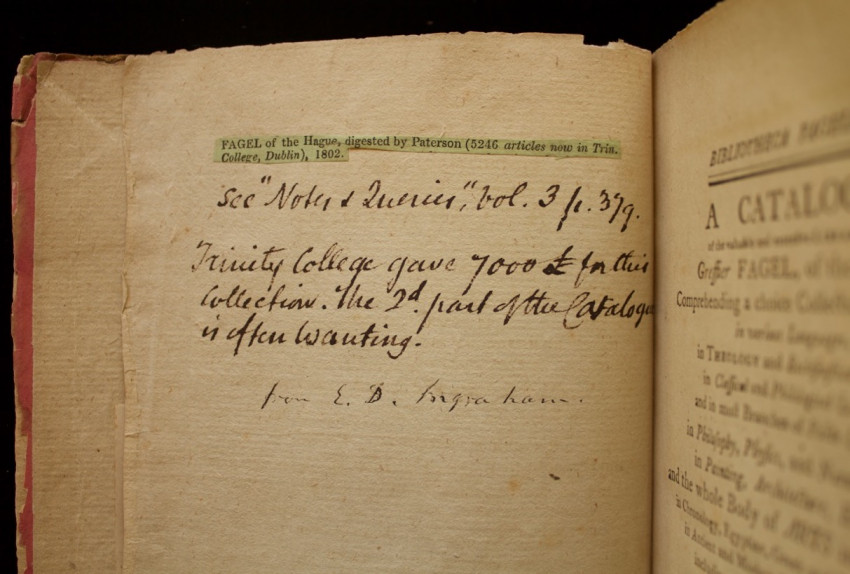 FAGEL of the Hague, digested by Paterson (5246 articles now in Trin.
College, Dublin), 1802.
See "Notes & Queries", Vol. 3 p. 379.
Trinity College gave 7000 £ for this
Collection. The 2d. part of the Catalogue
is often wanting.
from E. D. Ingraham.
BIBLIOTHECA
A CATALOG
of the valuable and
Greffier FAGEL, of
Comprehending a choice Collection
in various Languages,
in THEOLOGY and
in Classical and Philological
and in most Branches of Polite
in Philosophy, Physics, and
in Painting, Architecture,
and the whole Body of ARTS
in Chronology, Egyptian,
in Antient and